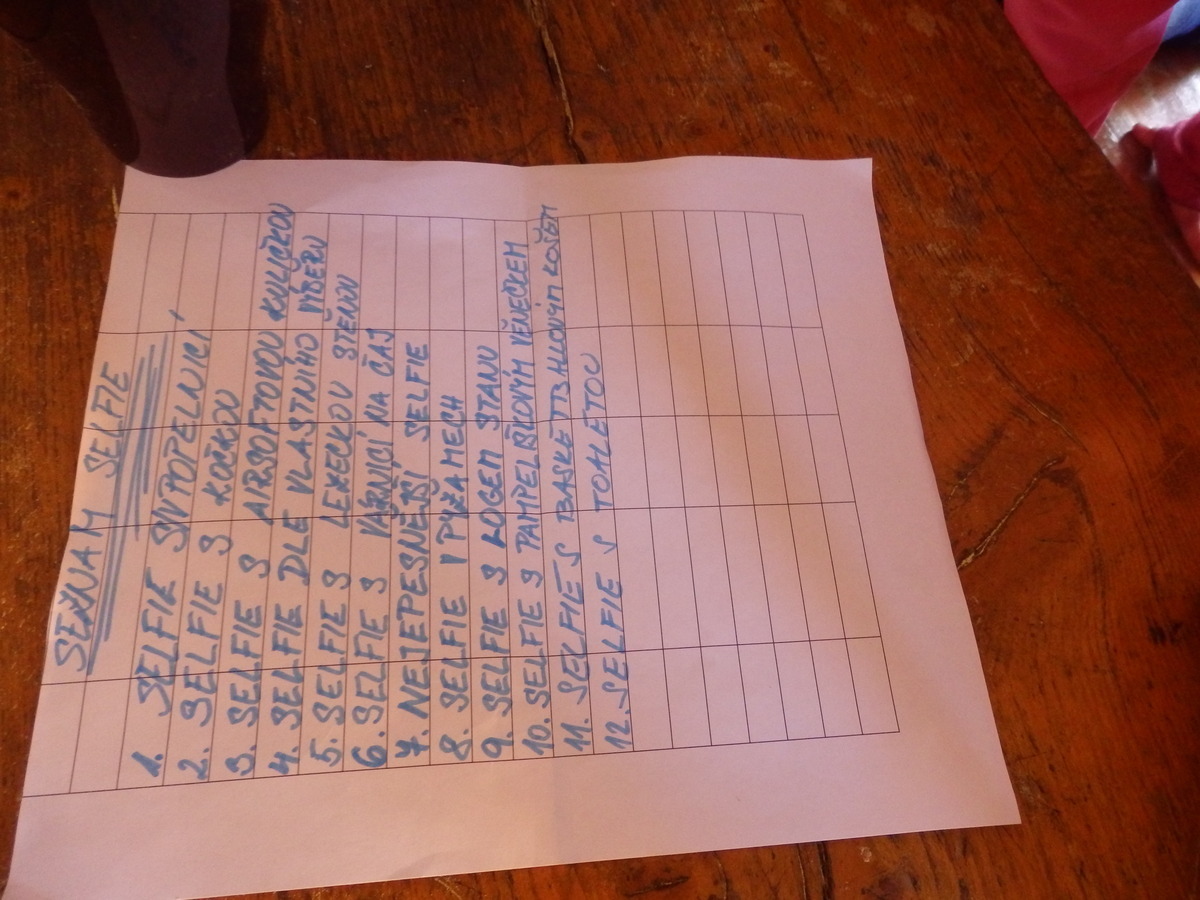 SEZNAM SELFIE
1. SELFIE S VYTOPELNICÍ
2. SELFIE S KOČKOU
3. SELFIE S AIRSOFTOVOU KULIČKOU
4. SELFIE DLE VLASTNÍHO VÝBĚRU
5. SELFIE S LEZECKOU STĚNOU
6. SELFIE S VÁRNICÍ NA ČAJ
7. NEJEPESNĚJŠÍ SELFIE
8. SELFIE V PYŽAMECH
9. SELFIE S LOGEM STANU
10. SELFIE S PAMPELIŠKOVÝM VĚNEČKEM
11. SELFIE S BASKETBALOVÝM KOŠEM
12. SELFIE S TOALETOU